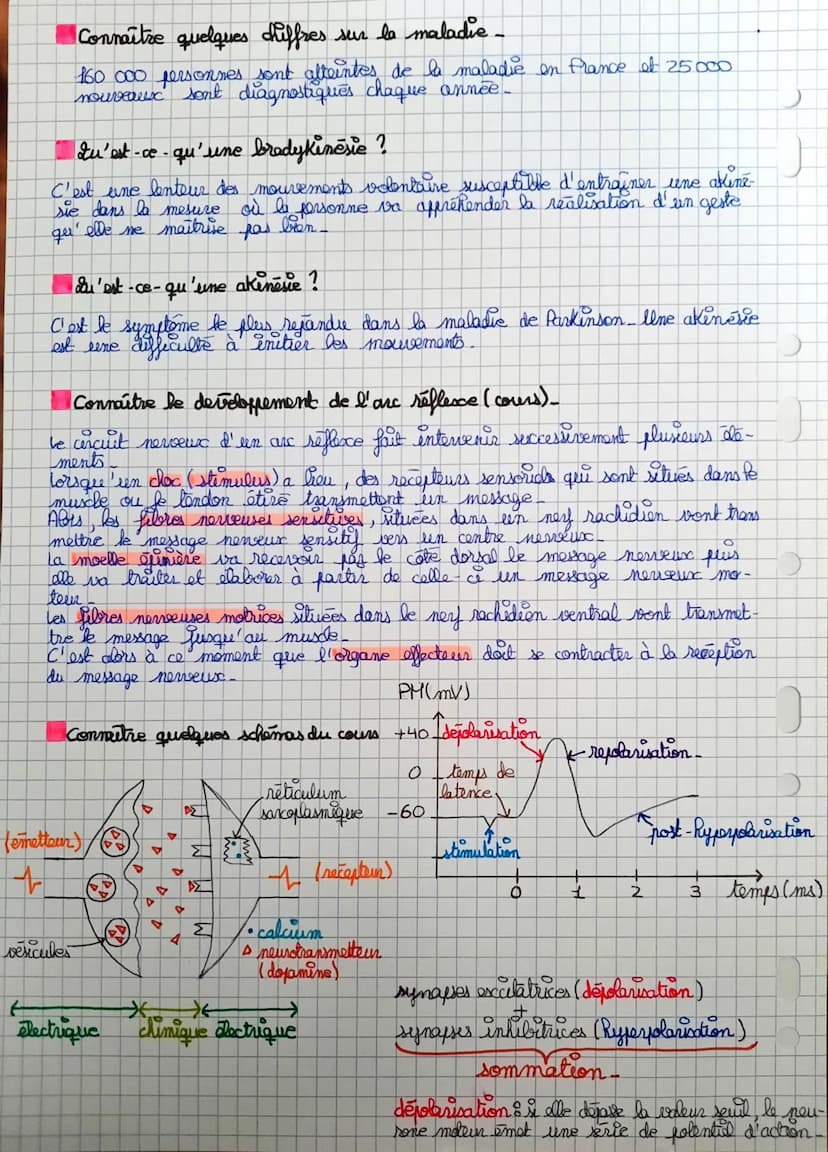 Connaître quelques chiffres sur la maladie -
160 000 personnes sont atteintes de la maladie en France et 25 000
nouveaux sont diagnostiqués chaque année -
Qu'est-ce-qu'une bradykinésie ?
C'est une lenteur des mouvements volontaire susceptible d'entraîner une akiné-
sie dans la mesure où la personne va appréhender la réalisation d'un geste
qu'elle ne maîtrise pas bien -
Qu'est-ce-qu'une akinésie ?
C'est le symptôme le plus répandu dans la maladie de Parkinson - Une akinésie
est une difficulté à initier les mouvements -
Connaître le développement de l'arc réflexe (cours) -
Le circuit nerveux d'un arc réflexe fait intervenir successivement plusieurs élé-
ments -
Lorsqu'un choc (stimulus) a lieu, des récepteurs sensoriels qui sont situés dans le
muscle ou le tendon étiré transmettent un message -
Alors, les fibres nerveuses sensitives, situées dans un nerf rachidien vont trans
mettre le message nerveux sensitif vers un centre nerveux -
La moelle épinière va recevoir par le côté dorsal le message nerveux puis
elle va traiter et élaborer à partir de celle-ci un message nerveux mo-
teur -
Les fibres nerveuses motrices situées dans le nerf rachidien ventral vont transmet-
tre le message jusqu'au muscle -
C'est alors à ce moment que l'organe effecteur doit se contracter à la réception
du message nerveux -
Connaître quelques schémas du cours
PM (mV)
+40
dépolarisation
repolarisation -
0
temps de
latence
-60
stimulation
post-hyperpolarisation
0 1 2 3 temps (ms)
réticulum
sarcoplasmique
(émetteur)
(récepteur)
vésicules
• calcium
neurotransmetteur
(dopamine)
électrique chimique électrique
synapses excitatrices (dépolarisation)
+
synapses inhibitrices (hyperpolarisation)
sommation -
dépolarisation : si elle dépasse la valeur seuil, le neu-
rone moteur émet une série de potentiel d'action -